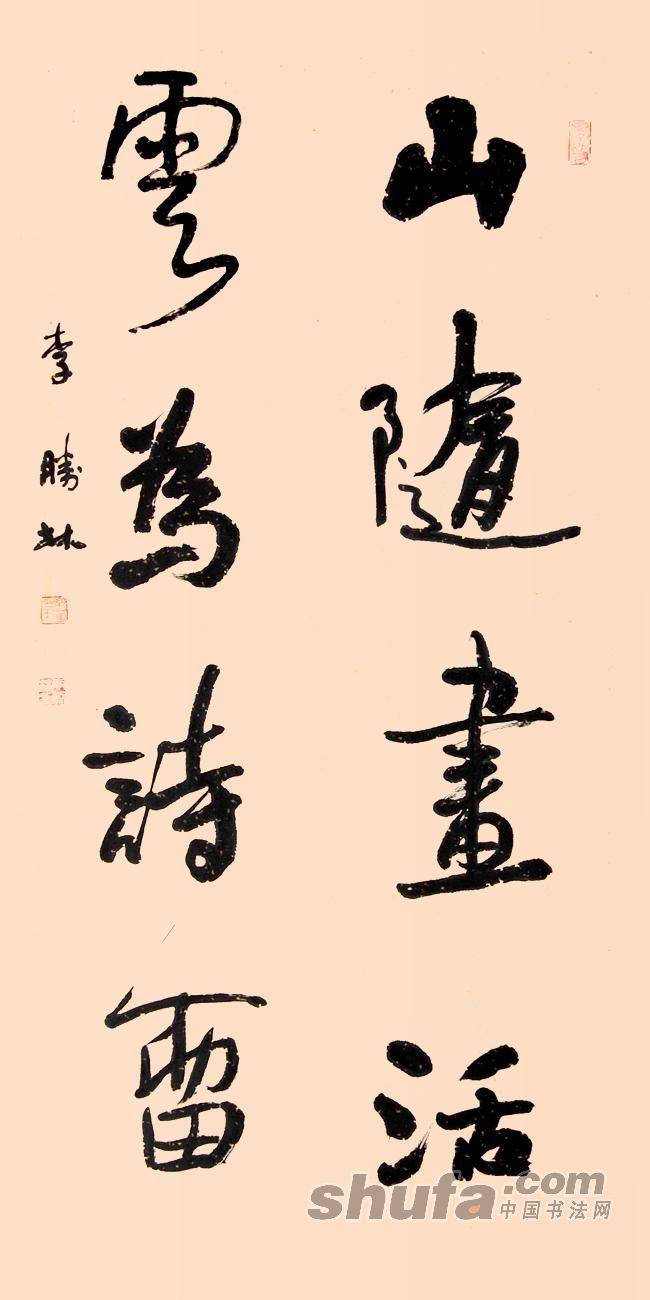 山隨畫活
雲為詩畱
李勝林
shufa.com
中国书法网